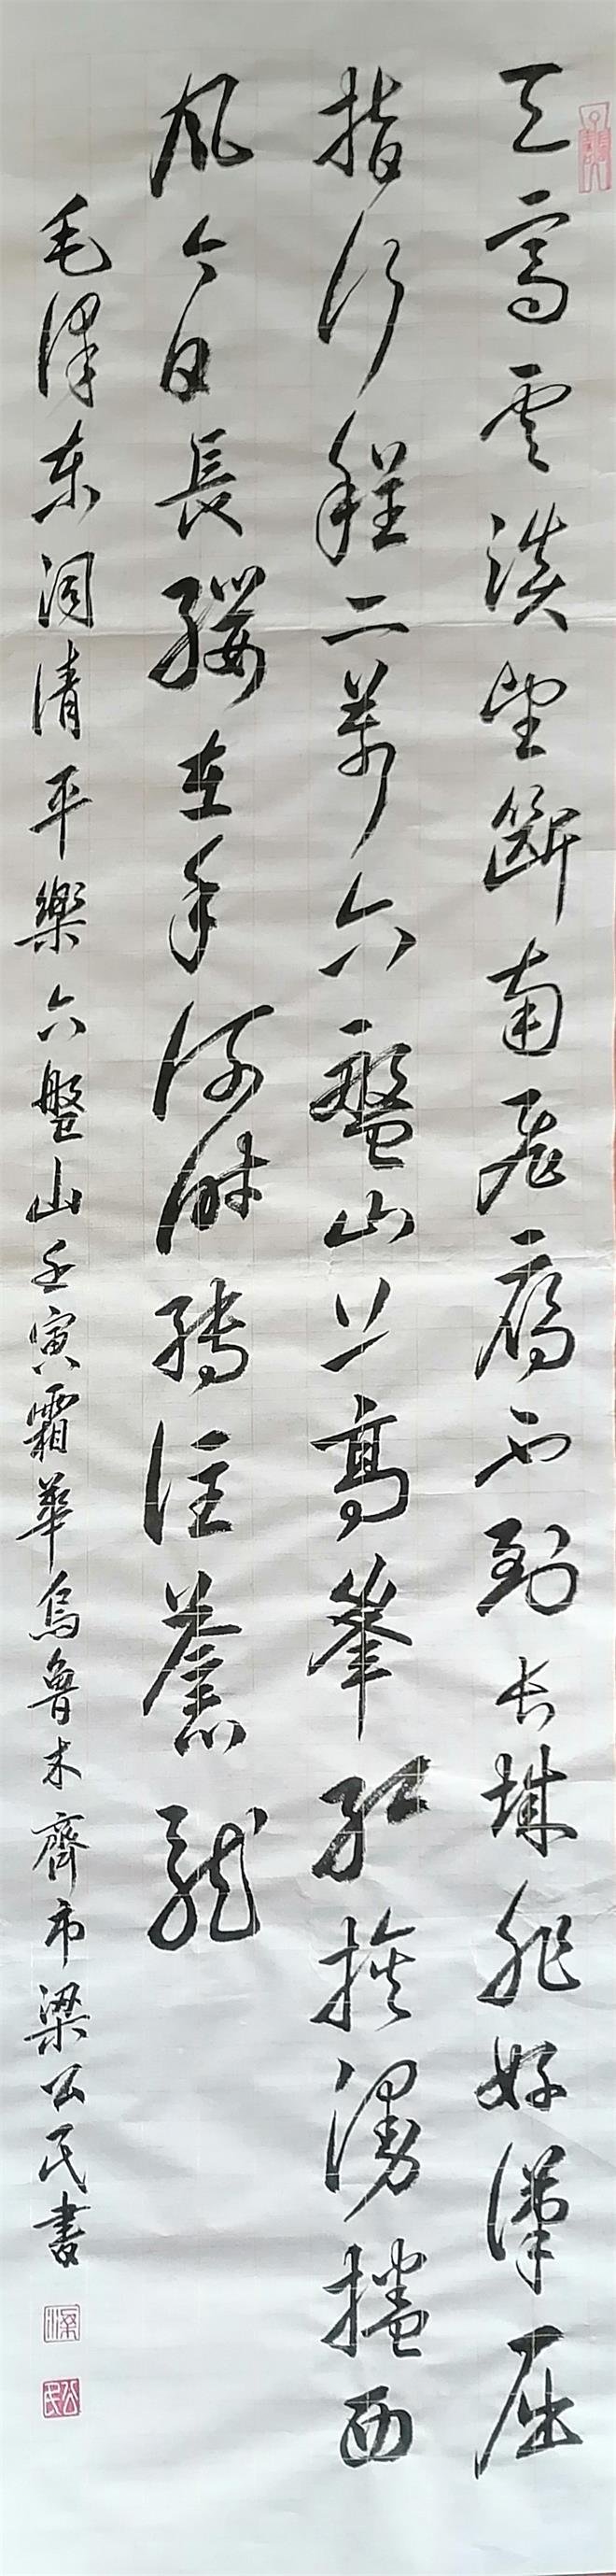 天高雲淡望斷南飛雁不到长城非好漢屈
指行程二萬六盤山上高峯紅旗漫捲西
风今日長纓在手何时缚住蒼龍
毛澤东词清平樂六盤山壬寅霜華烏鲁木齊市梁公民書
梁
公民